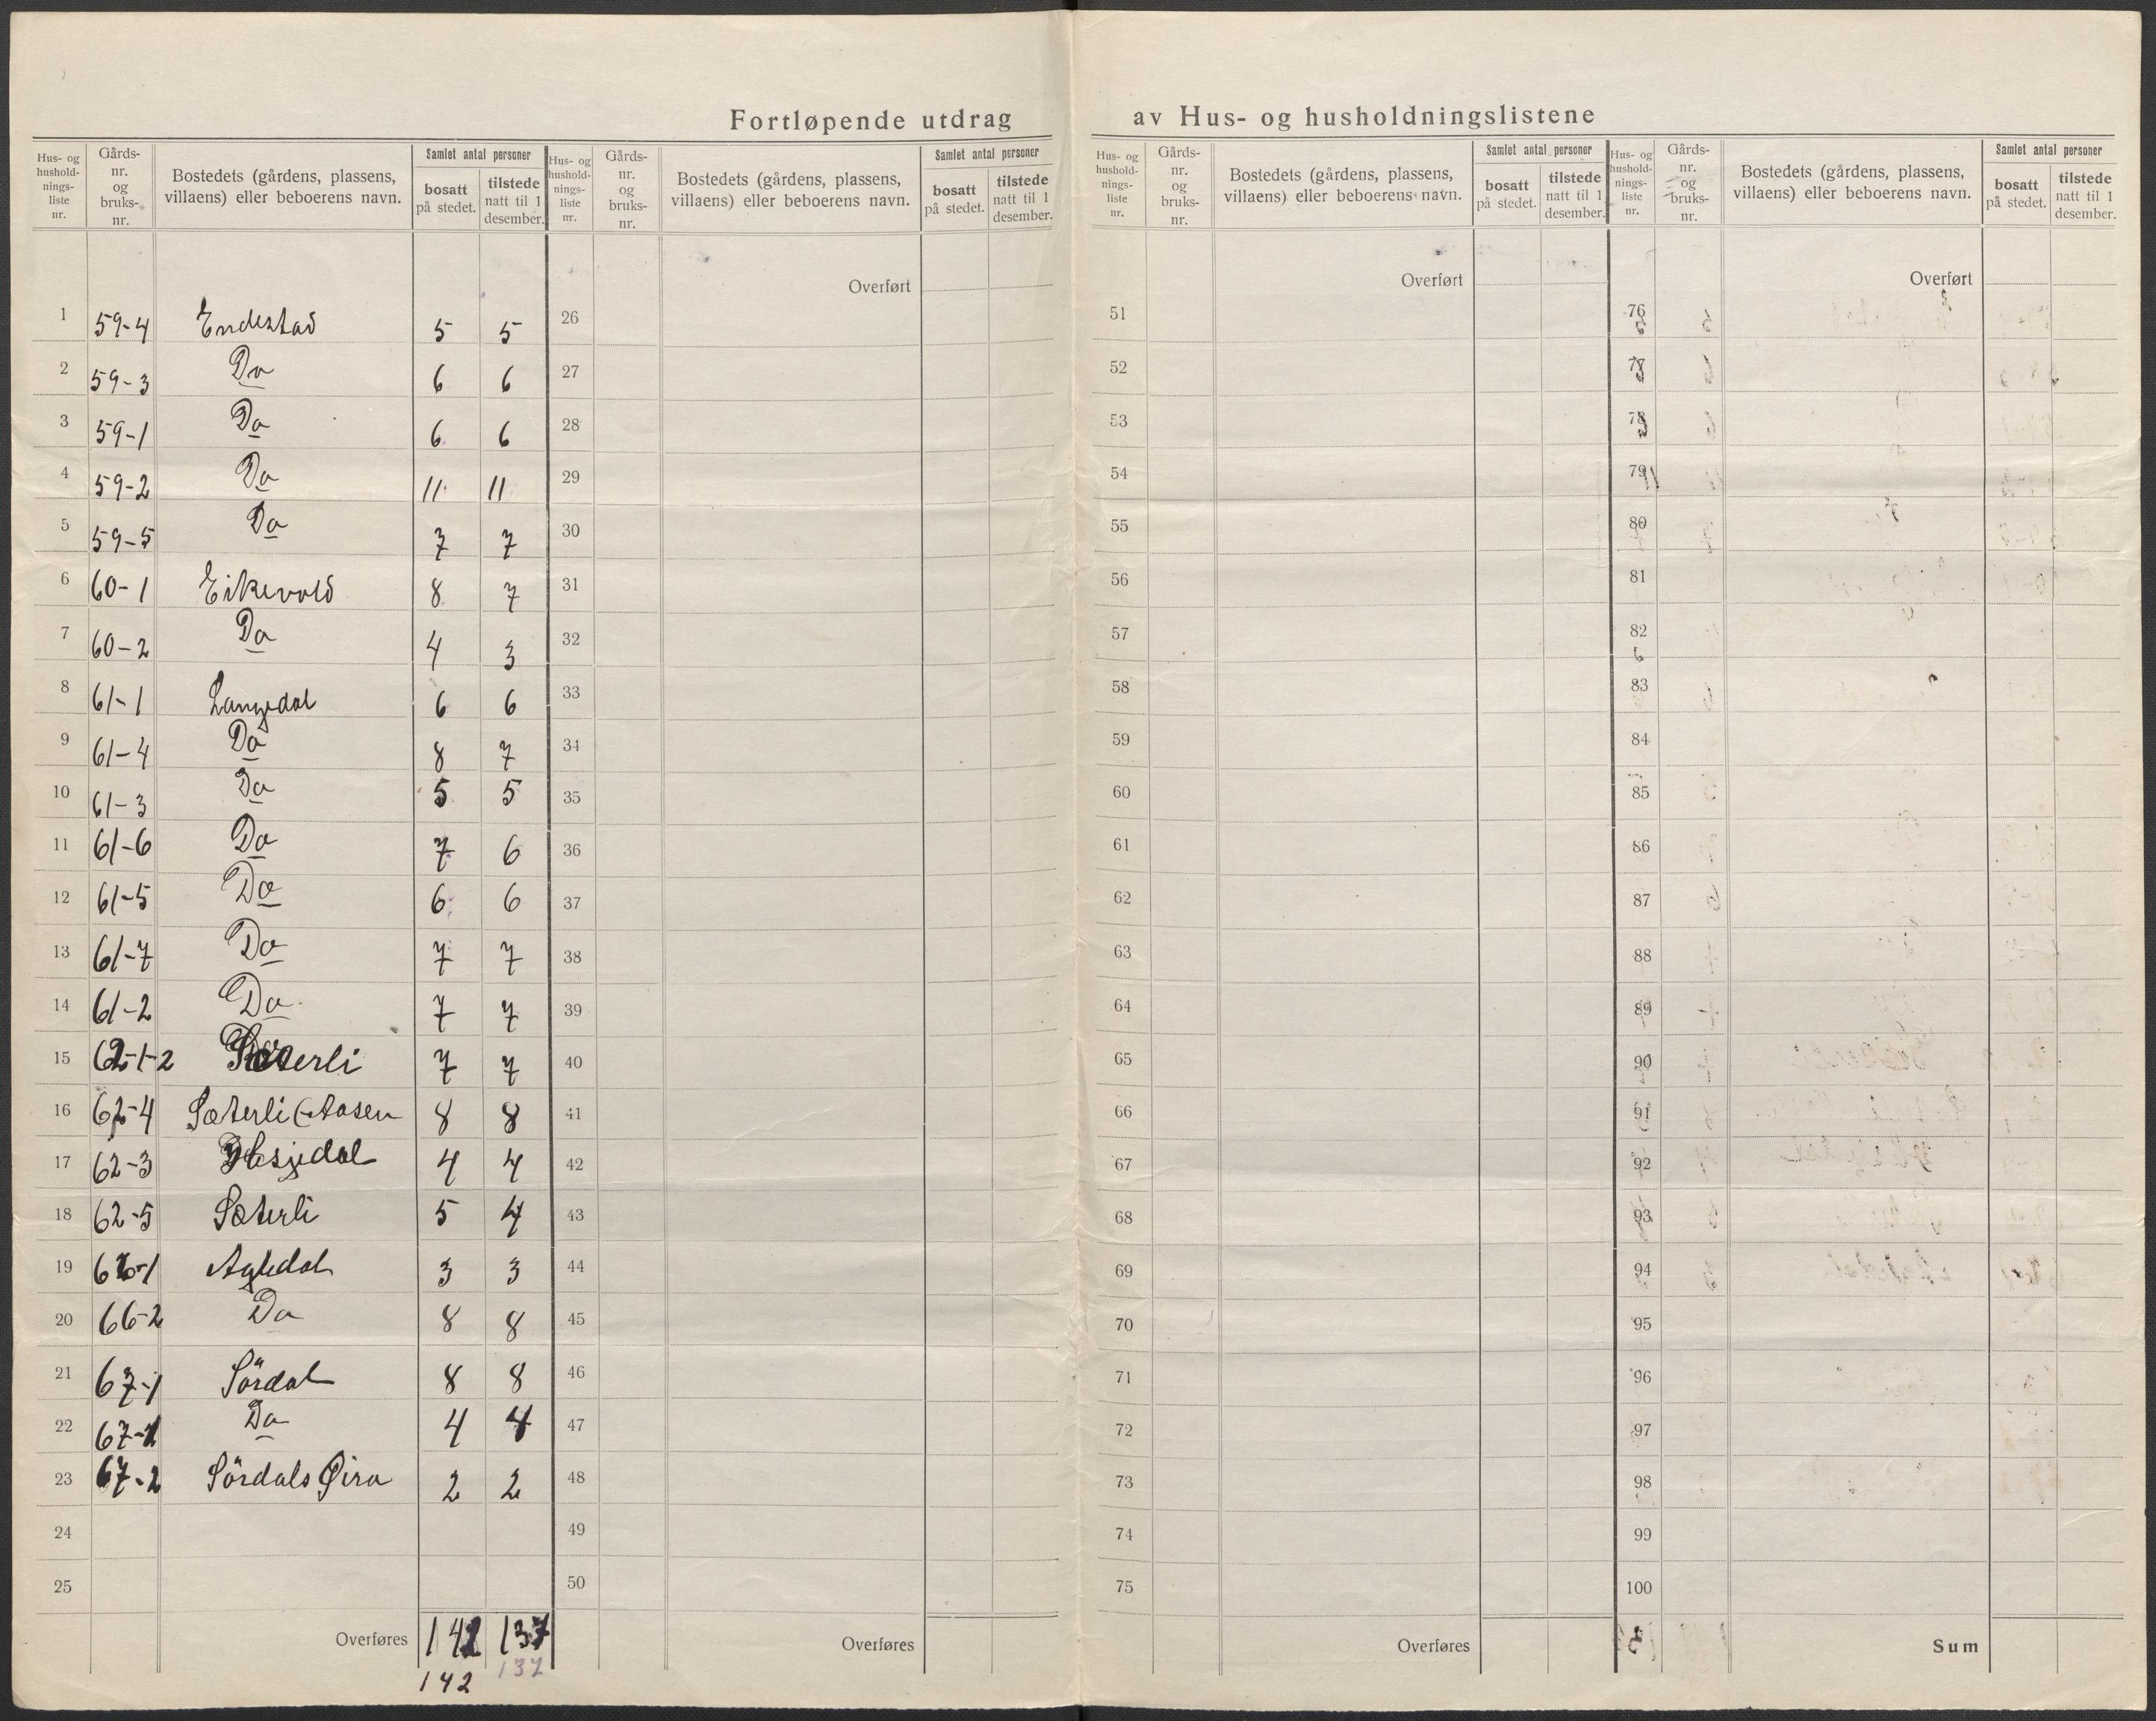 Fortløpende utdrag av Hus- og husholdningslistene
Hus- og hushold-nings-liste nr. | Gårds-nr. og bruks-nr. | Bostedets (gårdens, plassens, villaens) eller beboerens navn. | Samlet antal personer | bosatt på stedet. | tilstede natt til 1 desember.
Hus- og hushold-nings-liste nr. | Gårds-nr. og bruks-nr. | Bostedets (gårdens, plassens, villaens) eller beboerens navn. | Samlet antal personer | bosatt på stedet. | tilstede natt til 1 desember.
Hus- og hushold-nings-liste nr. | Gårds-nr. og bruks-nr. | Bostedets (gårdens, plassens, villaens) eller beboerens navn. | Samlet antal personer | bosatt på stedet. | tilstede natt til 1 desember.
Hus- og hushold-nings-liste nr. | Gårds-nr. og bruks-nr. | Bostedets (gårdens, plassens, villaens) eller beboerens navn. | Samlet antal personer | bosatt på stedet. | tilstede natt til 1 desember.
Overført Overført Overført
1 59-4 Endestad 5 5 26 51 76
2 59-3 Do 6 6 27 52 77
3 59-1 Do 6 6 28 53 78
4 59-2 Do 11 11 29 54 79
5 59-5 Do 7 7 30 55 80
6 60-1 Eikevold 8 7 31 56 81
7 60-2 Do 4 3 32 57 82
8 61-1 Langedal 6 6 33 58 83
9 61-4 Do 8 7 34 59 84
10 61-3 Do 5 5 35 60 85
11 61-6 Do 7 6 36 61 86
12 61-5 Do 6 6 37 62 87
13 61-7 Do 7 7 38 63 88
14 61-2 Do 7 7 39 64 89
15 62-1-2 Sæterli 7 7 40 65 90
16 62-4 Sæterli (Aasen 8 8 41 66 91
17 62-3 Hesjedal 4 4 42 67 92
18 62-5 Sæterli 5 4 43 68 93
19 Apledal 3 3 44 69 94
20 66-2 Do 8 8 45 70 95
21 67-1 Sördal 8 8 46 71 96
22 Do 4 4 47 72 97
23 67-2 Sördals Øira 2 2 48 73 98
24 49 74 99
25 50 75 100
Overføres 142 137 Overføres Overføres Sum
142 137